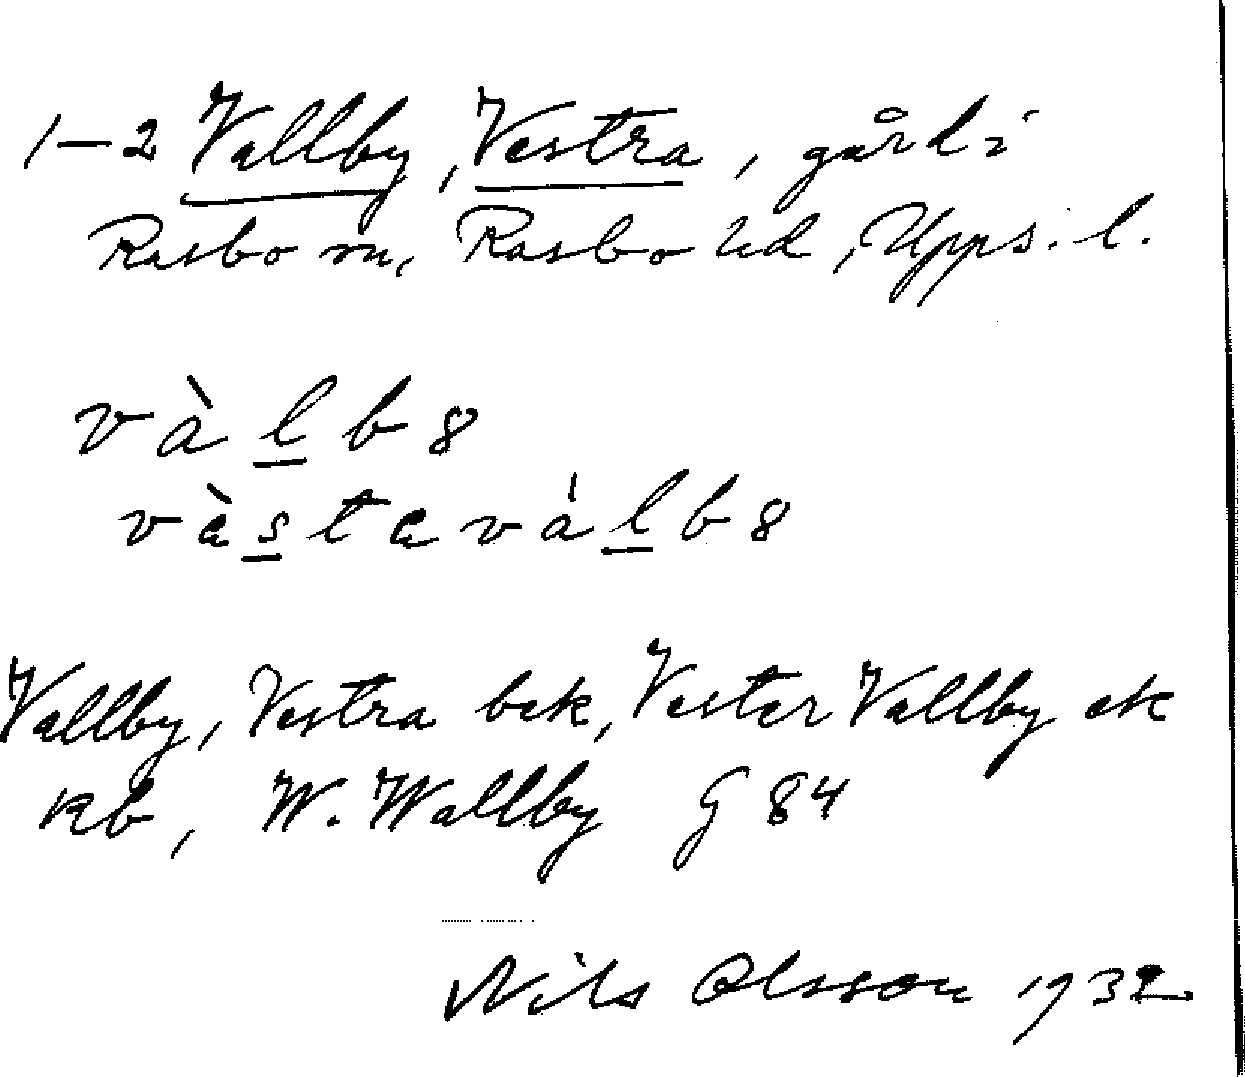 1–2 Vallby, Vestra, gård i
Rasbo sn, Rasbo hd, Upps. l.
vàl̲b8
vàs̲ta vál̲b8
Vallby, Vestra bek, Vester Vallby ek
Kb, W. Wallby G 84
Nils Olsson 1932